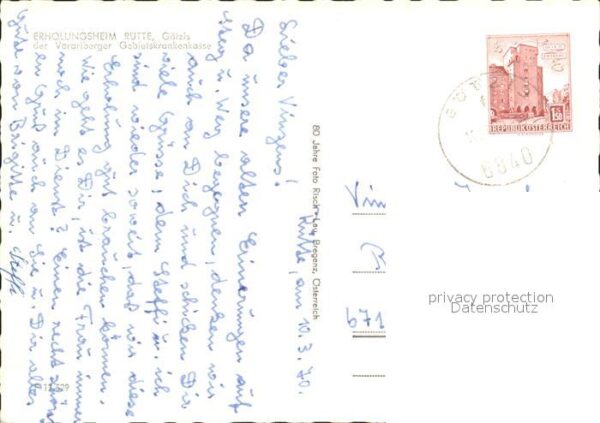 ERHOLUNGSHEIM RÜTTE, Götzis
der Vorarlberger Gebietskrankenkasse
Rütte, am 10.3.70.
Lieber Vinzens!
Da unsere alten Erinnerungen auf
Berg u. Weg begegnen, denken wir
auch an Dich und schicken Dir
viele Grüsse, dem Steffi u. ich
sind wieder soweit, daß wir diese
Erholung gut brauchen können.
Wie geht es Dir, ist die Frau immer
noch im Dienst? Einen recht schönen
Gruß auch an Sie u. Dir alles
Gute von Brigitte u. Steffi
80 Jahre Foto Risch-Lau, Bregenz, Österreich
Vin
671
1.50
REPUBLIK ÖSTERREICH
6840
privacy protection
Datenschutz